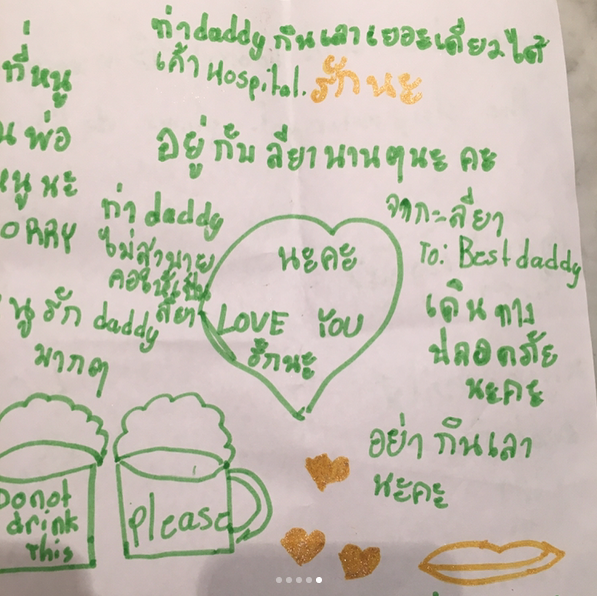 ถ้า daddy กินเลาเยอะเดียวได้
เค้า Hospital. รักนะ
ที่หนู
พ่อ
อยู่กับ ลียา นานๆนะ คะ
หนู นะ
ORRY
ถ้า daddy
ไม่สาบาย
ลียา
รัก daddy
มากๆ
นะคะ
LOVE YOU
รักนะ
จากะลียา
To: Best daddy
เดินทาง
ปลอดภัย
นะคะ
อย่า กินเลา
นะคะ
Do not
drink
this
please